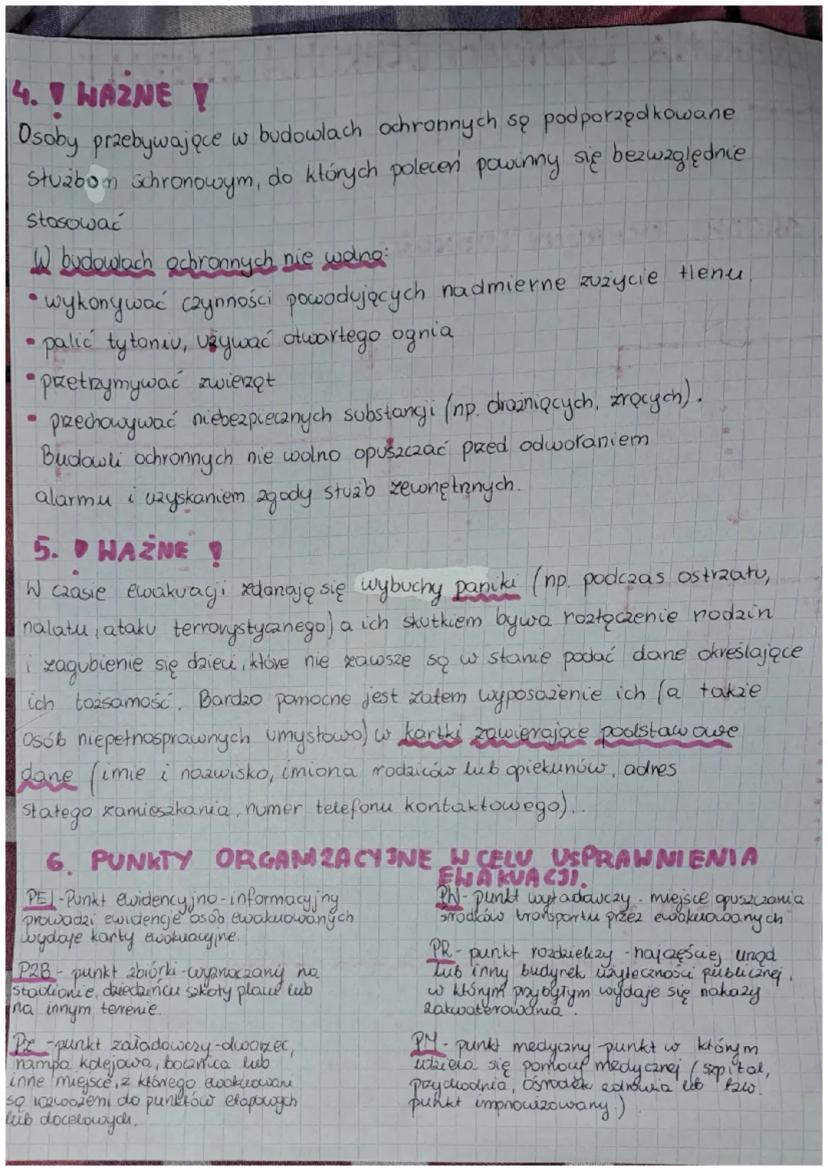 4. ! WAŻNE !
Osoby przebywające w budowlach ochronnych są podporządkowane
służbom schronowym, do których poleceń powinny się bezwzględnie
stosować
W budowlach ochronnych nie wolno:
• wykonywać czynności powodujących nadmierne zużycie tlenu
• palić tytoniu, używać otwartego ognia
• przetrzymywać zwierząt
• przechowywać niebezpiecznych substancji (np. drażniących, żrących).
Budowli ochronnych nie wolno opuszczać przed odwołaniem
alarmu i uzyskaniem zgody służb zewnętrznych.
5. ! WAŻNE !
W czasie ewakuacji zdarzają się wybuchy paniki (np. podczas ostrzału,
nalatu, ataku terrorystycznego) a ich skutkiem bywa rozłączenie rodzin
i zagubienie się dzieci, które nie zawsze są w stanie podać dane określające
ich tożsamość. Bardzo pomocne jest zatem wyposażenie ich (a także
osób niepełnosprawnych umysłowo) w kartki zawierające podstawowe
dane (imie i nazwisko, imiona rodziców lub opiekunów, adres
stałego zamieszkania, numer telefonu kontaktowego)..
6. PUNKTY ORGANIZACYJNE W CELU USPRAWNIENIA
EWAKUACJI.
PEI - Punkt ewidencyjno-informacyjny
prowadzi ewidencje osób ewakuowanych
wydaje karty ewakuacyjne.
PZB - punkt zbiórki - wyznaczany na
stadionie, dziedzińcu szkoły placu lub
na innym terenie.
PZ - punkt załadowczy - dworzec,
rampa kolejowa, bocznica lub
inne miejsce, z którego ewakuowani
są rozwożeni do punktów etapowych
lub docelowych.
PW - punkt wyładowczy - miejsce opuszczania
środków transportu przez ewakuowanych
PR - punkt rozdzielczy - najczęściej urząd
lub inny budynek użyteczności publicznej,
w którym przybyłym wydaje się nakazy
zakwaterowania.
PM - punkt medyczny - punkt w którym
udziela się pomocy medycznej (szpital,
przychodnia, ośrodek zdrowia lub tzw.
punkt improwizowany.)